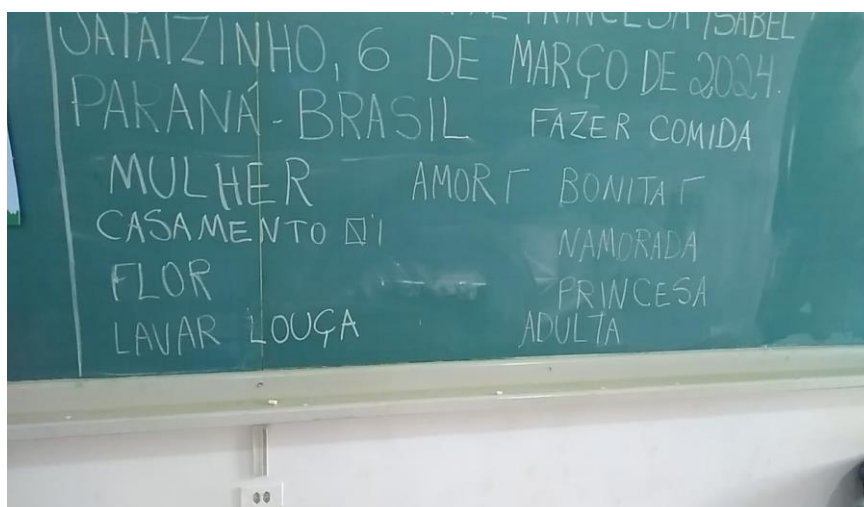 PRINCESA ISABEL
JATAIZINHO, 6 DE MARÇO DE 2024.
PARANÁ - BRASIL FAZER COMIDA
MULHER AMOR BONITA
CASAMENTO NAMORADA
FLOR PRINCESA
LAVAR LOUÇA ADULTA